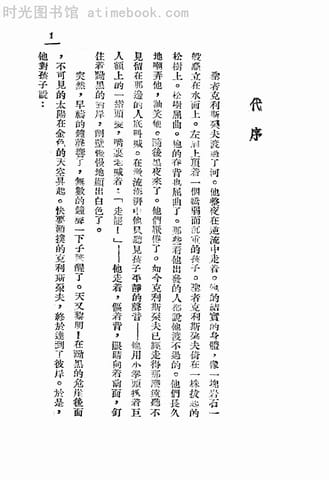 时光图书馆
www.cnboo.net
代序
聖者克利斯朶夫渡過了河。他整夜在逆流中走着。他的結實的身體，像一塊岩石一
般矗立在水面上。左肩上頂着一個嬌弱而沉重的孩子。聖者克利斯朶夫倚在一株拔起的
松樹上。松樹屈曲。他的脊背也屈曲了。那些看他出發的人都說他渡不過的。他們長久
地嘲弄他，訕笑他。隨後黑夜來了。他們厭倦了。如今克利斯朶夫已經走得那麽遠聽不
見留在那邊的人底叫喊。在激流澎湃中他只聽見孩子平靜的聲音——他用小拳頭抓着巨
人額上的一綹頭髮，嘴裏老喊着：「走罷！」——他走着，傴着背，眼睛向着前面，釘
住着黝黑的對岸，削壁慢慢地顯出白色了。
突然，早禱的鐘聲響了，無數的鐘聲一下子驚醒了。天又黎明！在黝黑的危岸後面
，不可見的太陽在金色的天空昇起。快要顚撲的克利斯朶夫，終於達到了彼岸。於是，
他對孩子說：
1